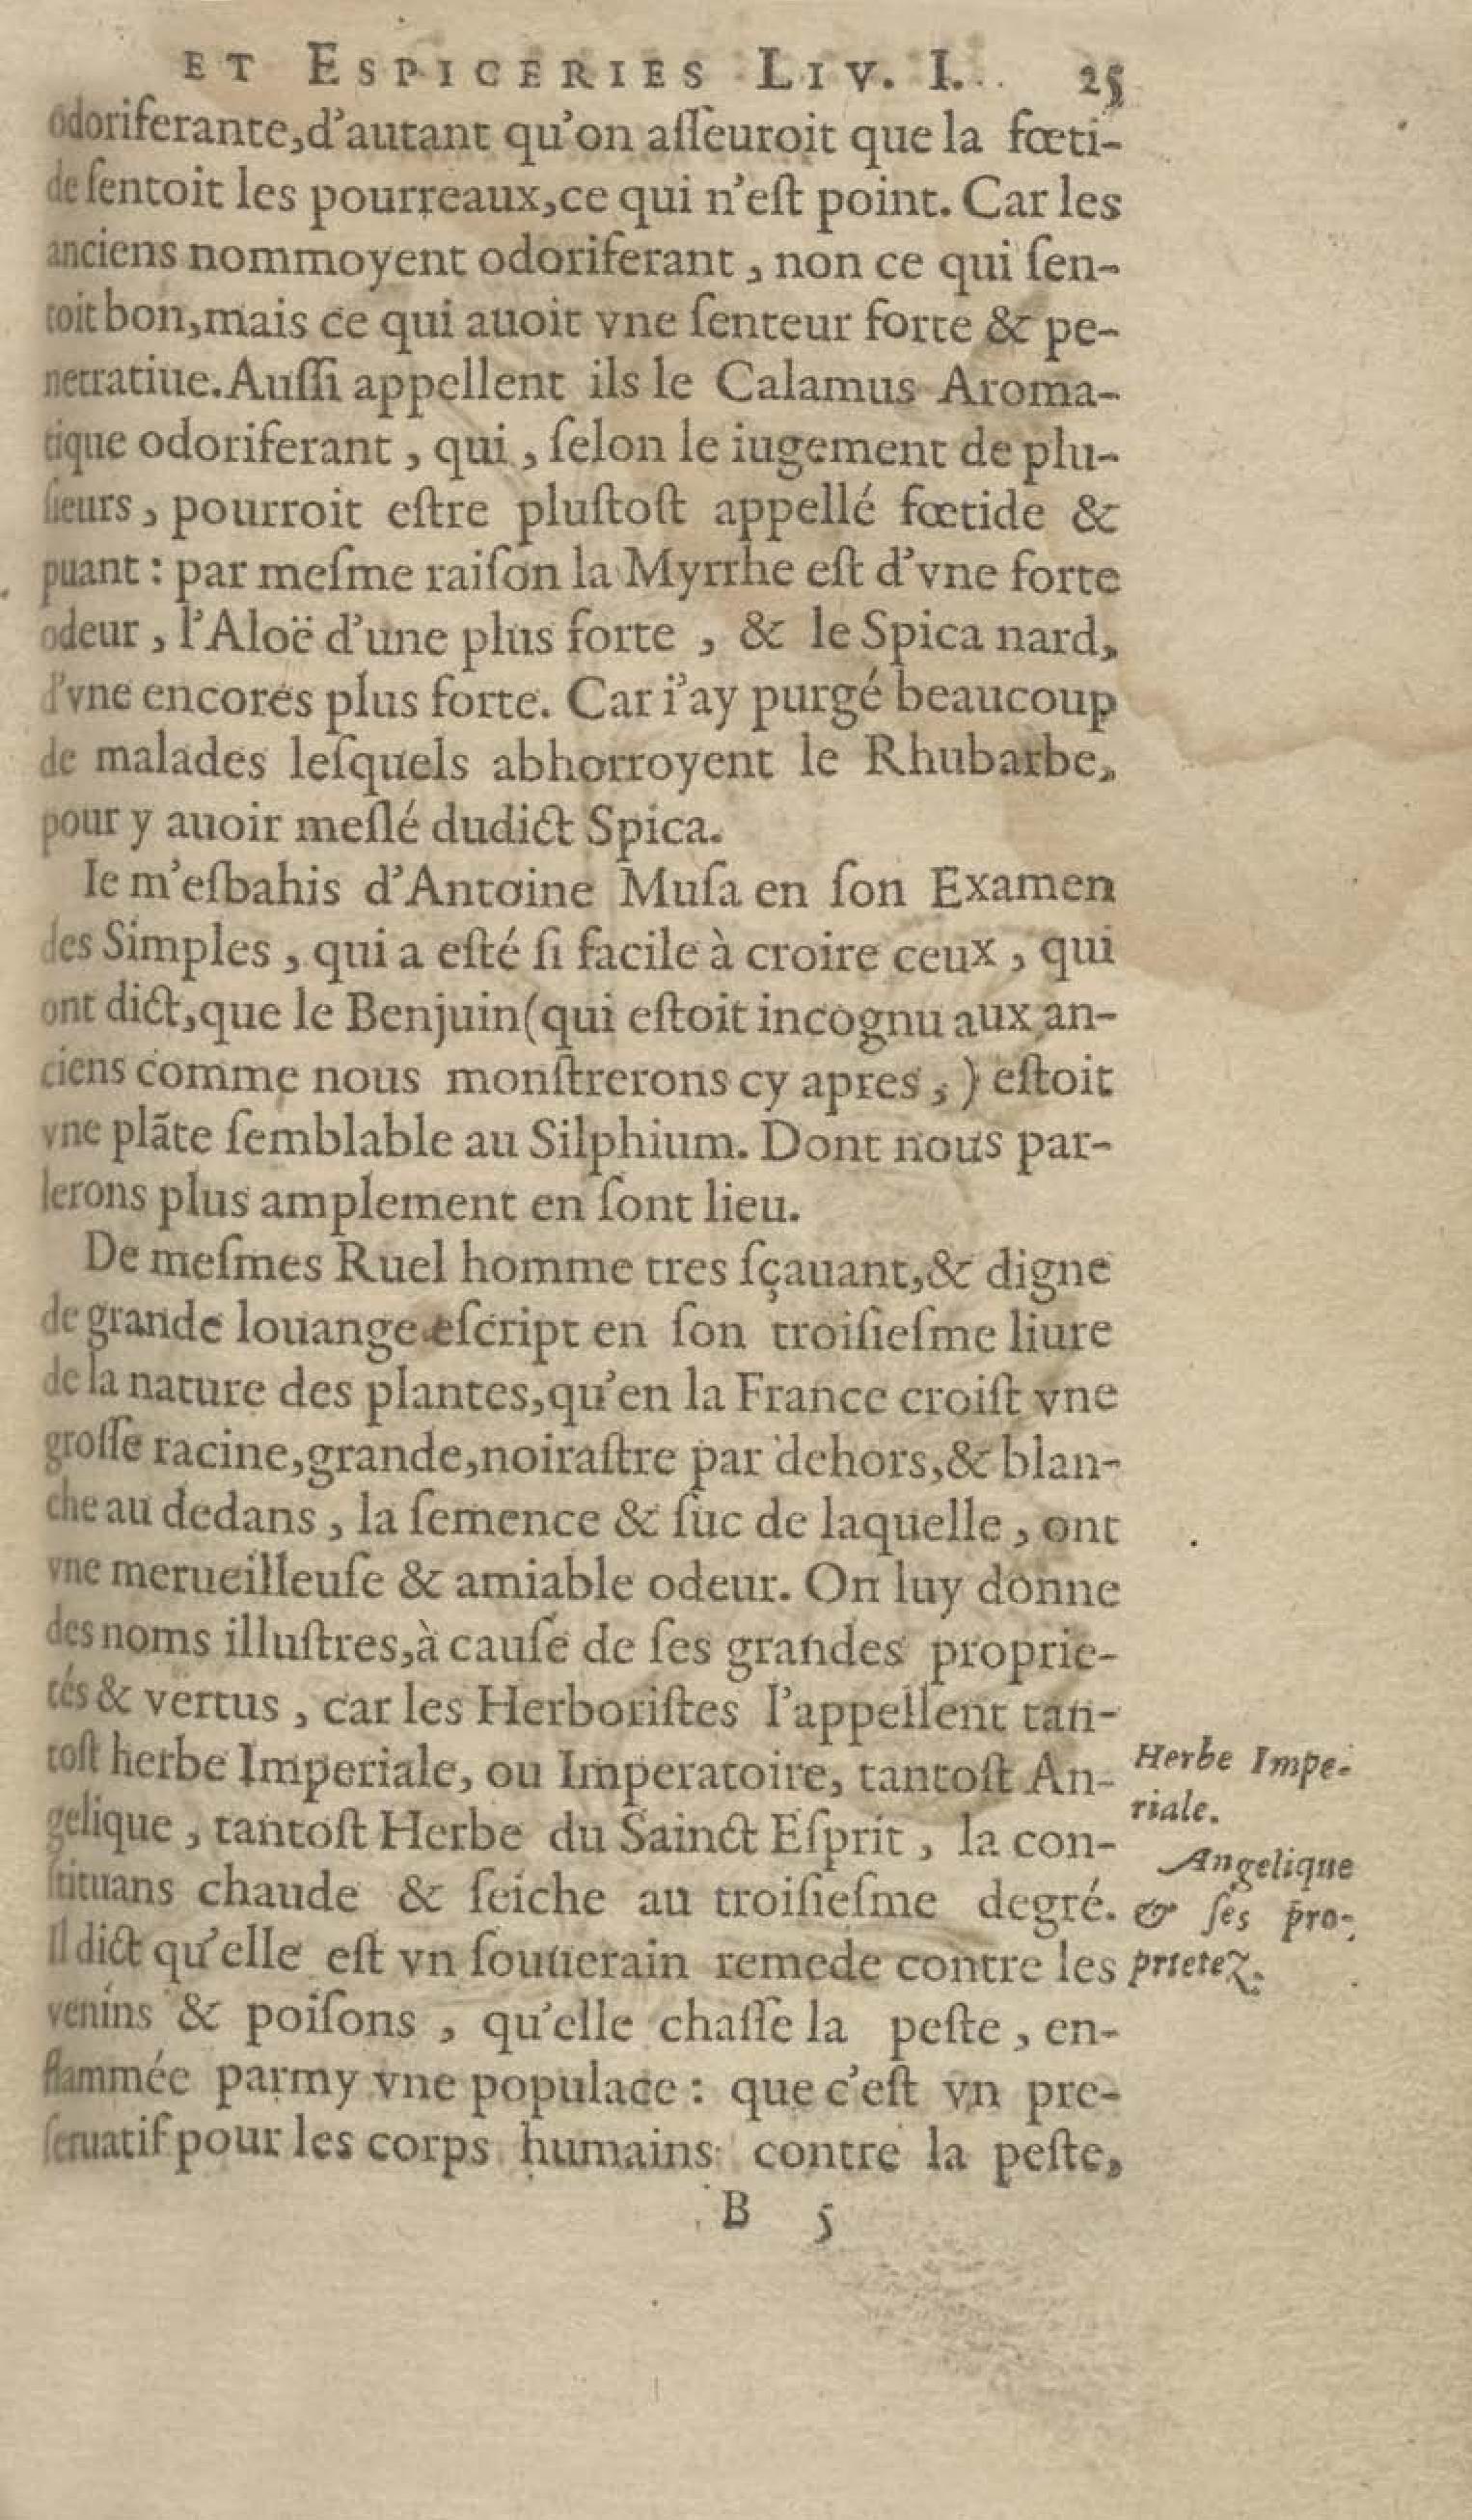 ET ESPICERIES LIV. I. 25
odoriferante,d'autant qu'on aſſeuroit que la fœti-
de ſentoit les pourreaux,ce qui n'eſt point. Car les
anciens nommoyent odoriferant , non ce qui ſen-
toit bon,mais ce qui auoit vne ſenteur forte & pe-
netratiue.Auſſi appellent ils le Calamus Aroma-
tique odoriferant , qui , ſelon le iugement de plu-
ſieurs , pourroit eſtre pluſtoſt appellé fœtide &
puant : par meſme raiſon la Myrrhe eſt d'vne forte
odeur , l'Aloë d'une plus forte , & le Spica nard,
d'vne encores plus forte. Car i'ay purgé beaucoup
de malades leſquels abhorroyent le Rhubarbe,
pour y auoir meſlé dudict Spica.
Ie m'eſbahis d'Antoine Muſa en ſon Examen
des Simples , qui a eſté ſi facile à croire ceux , qui
ont dict,que le Benjuin(qui eſtoit incognu aux an-
ciens comme nous monſtrerons cy apres , ) eſtoit
vne plãte ſemblable au Silphium. Dont nous par-
lerons plus amplement en ſont lieu.
De meſmes Ruel homme tres ſçauant,& digne
de grande louange eſcript en ſon troiſieſme liure
de la nature des plantes,qu'en la France croiſt vne
groſſe racine,grande,noiraſtre par dehors,& blan-
che au dedans , la ſemence & ſuc de laquelle , ont
vne merueilleuſe & amiable odeur. On luy donne
des noms illuſtres,à cauſe de ſes grandes proprie-
tés & vertus , car les Herboriſtes l'appellent tan-
toſt herbe Imperiale, ou Imperatoire, tantoſt An-
gelique , tantoſt Herbe du Sainct Eſprit , la con-
ſtituans chaude & ſeiche au troiſieſme degré.
Il dict qu'elle eſt vn ſouuerain remede contre les
venins & poiſons , qu'elle chaſſe la peſte , en-
flammée parmy vne populace : que c'eſt vn pre-
ſeruatif pour les corps humains contre la peſte,
Herbe Impe-
riale.
Angelique
& ſes pro-
prietez.
B 5